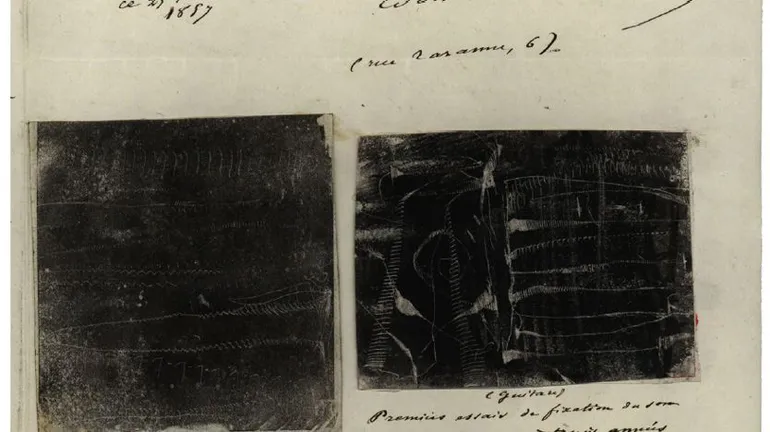 ce 25
1857
(rue Taranne, 6)
(Guitare)
Premiers essais de fixation du son
années